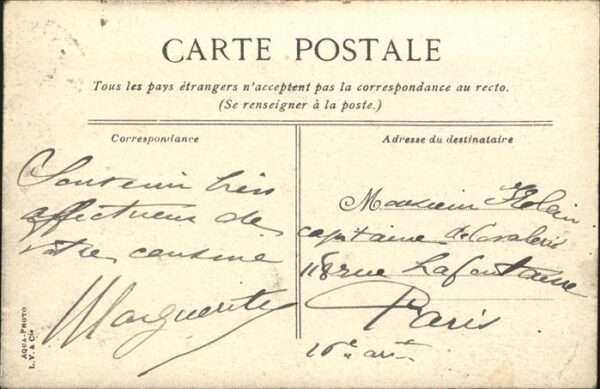 CARTE POSTALE
Tous les pays étrangers n'acceptent pas la correspondance au recto.
(Se renseigner à la poste.)
Correspondance
Souvenir bien
affectueux de
votre cousine
Marguerite
Adresse du destinataire
Monsieur
capitaine de Cavalerie
118 rue Lafontaine
Paris
16e arrt
AQUA-PHOTO
L. V. & Cie